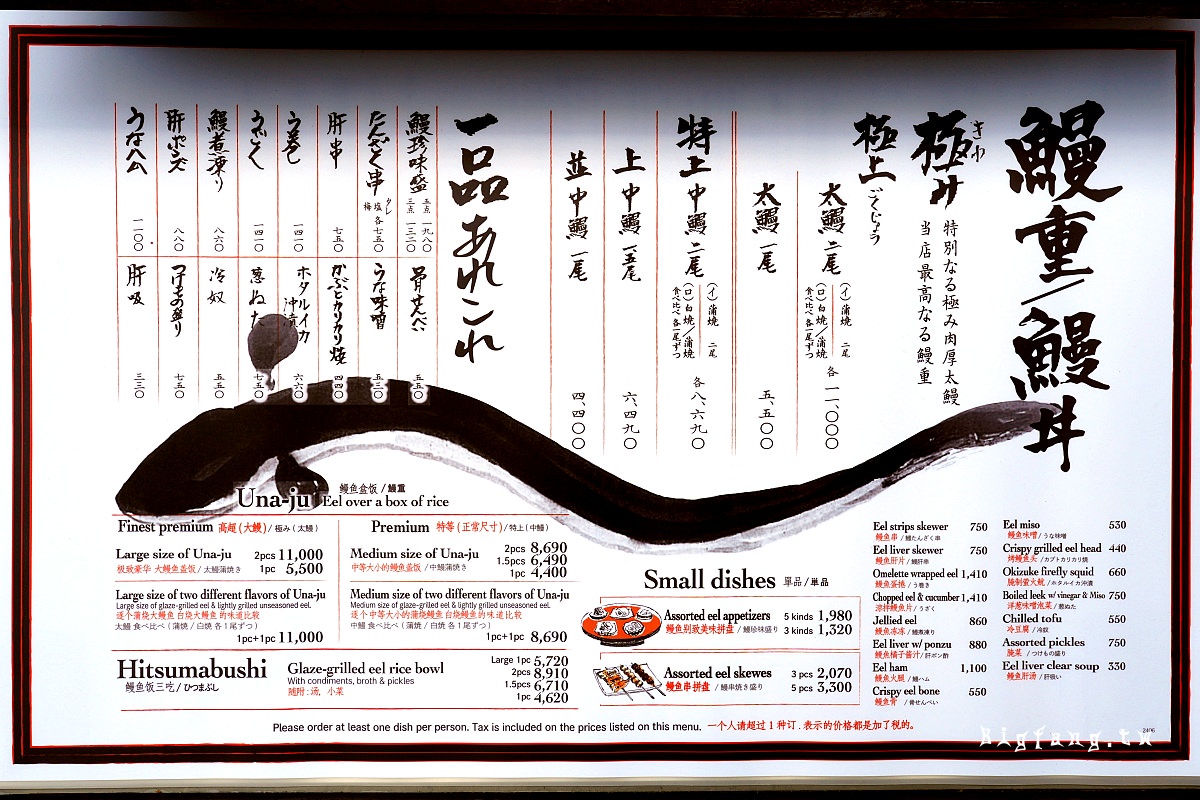 鰻重/鰻丼
極み
きわ
特別なる極み肉厚太鰻
当店最高なる鰻重
極上
ごくじょう
太鰻 二尾
(イ)蒲焼 二尾
(ロ)白焼/蒲焼
食べ比べ各一尾ずつ
各一一、〇〇〇
太鰻 一尾
五、五〇〇
特上
中鰻 二尾
(イ)蒲焼 二尾
(ロ)白焼/蒲焼
食べ比べ各一尾ずつ
各八、六九〇
上 中鰻 一.五尾
六、四九〇
並 中鰻 一尾
四、四〇〇
一品あれこれ
鰻珍味盛
五点 一九八〇
三点 一三二〇
たんざく串
タレ
塩
梅
各七五〇
肝串
七五〇
う巻き
一四一〇
うざく
一四一〇
鰻煮凍り
八六〇
肝ポンズ
八八〇
うなハム
一一〇〇
骨せんべい
五五〇
うな味噌
五三〇
かぶとカリカリ焼
四四〇
ホタルイカ
沖漬
六六〇
葱ぬた
七五〇
冷奴
五五〇
つけもの盛り
七五〇
肝吸
三三〇
Una-ju 鰻鱼盒饭 / 鰻重
Eel over a box of rice
Finest premium 高超(大鳗) / 極み(太鰻)
Large size of Una-ju 2pcs 11,000
极致豪华 大鳗鱼盖饭 / 太鰻蒲焼き 1pc 5,500
Large size of two different flavors of Una-ju
Large size of glaze-grilled eel & lightly grilled unseasoned eel.
逐个蒲烧大鳗鱼 白烧大鳗鱼 的味道比较
太鰻 食べ比べ(蒲焼 / 白焼 各1尾ずつ)
1pc+1pc 11,000
Premium 特等(正常尺寸) / 特上(中鰻)
Medium size of Una-ju 2pcs 8,690
1.5pcs 6,490
中等大小的鳗鱼盖饭 / 中鰻蒲焼き 1pc 4,400
Medium size of two different flavors of Una-ju
Medium size of glaze-grilled eel & lightly grilled unseasoned eel.
逐个中等大小的蒲烧鳗鱼 白烧鳗鱼 的味道比较
中鰻 食べ比べ(蒲焼 / 白焼 各1尾ずつ)
1pc+1pc 8,690
Hitsumabushi
鳗鱼饭三吃 / ひつまぶし
Glaze-grilled eel rice bowl
With condiments, broth & pickles
随附:汤, 小菜
Large 1pc 5,720
2pcs 8,910
1.5pcs 6,710
1pc 4,620
Small dishes 单品 / 単品
Assorted eel appetizers 5 kinds 1,980
鳗鱼别致美味拼盘 / 鰻珍味盛り 3 kinds 1,320
Assorted eel skewes 3 pcs 2,070
鳗鱼串拼盘 / 鰻串焼き盛り 5 pcs 3,300
Eel strips skewer 750
鳗鱼串 / 鰻たんざく串
Eel liver skewer 750
鳗鱼肝片 / 鰻肝串
Omelette wrapped eel 1,410
鳗鱼蛋捲 / う巻き
Chopped eel & cucumber 1,410
凉拌鳗鱼片 / うざく
Jellied eel 860
鳗鱼冻冻 / 鰻煮凍り
Eel liver w/ ponzu 880
鳗鱼橘子酱汁 / 肝ポン酢
Eel ham 1,100
鳗鱼火腿 / 鰻ハム
Crispy eel bone 550
鳗鱼骨 / 骨せんべい
Eel miso 530
鳗鱼味噌 / うな味噌
Crispy grilled eel head 440
烤鳗鱼头 / カブトカリカリ焼
Okizuke firefly squid 660
腌制萤火鱿 / ホタルイカ沖漬
Boiled leek w/ vinegar & Miso 750
洋葱味噌泡菜 / 葱ぬた
Chilled tofu 550
冷豆腐 / 冷奴
Assorted pickles 750
腌菜 / つけもの盛り
Eel liver clear soup 330
鳗鱼肝汤 / 肝吸い
Please order at least one dish per person. Tax is included on the prices listed on this menu. 一个人请超过 1 种订 . 表示的价格都是加了税的。
2406
Bigfang.tw